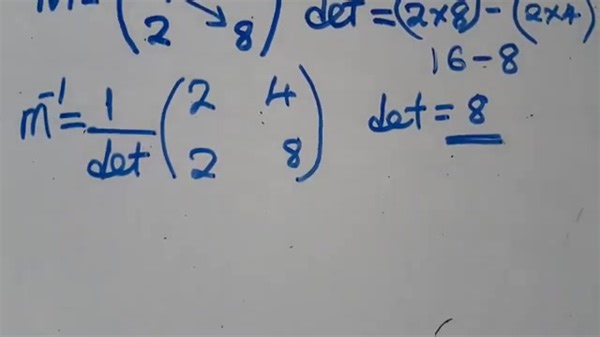 det = (2×8) - (2×4)
2 8
16 - 8
m⁻¹ = 1/det (2 4
2 8)
det = 8